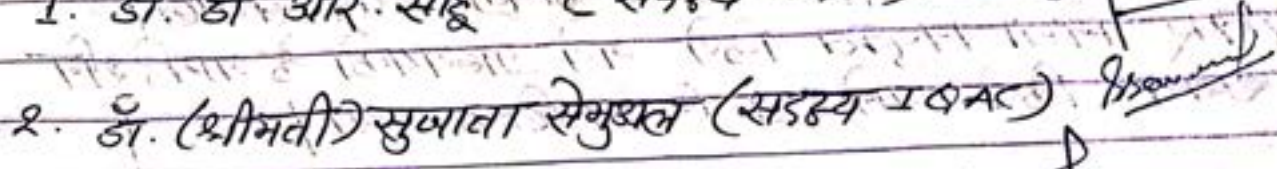 1. डा. डी. आर. साहू (सदस्य
२. डॉ. (श्रीमती) सुजाता सेमुअल (सदस्य IQAC)